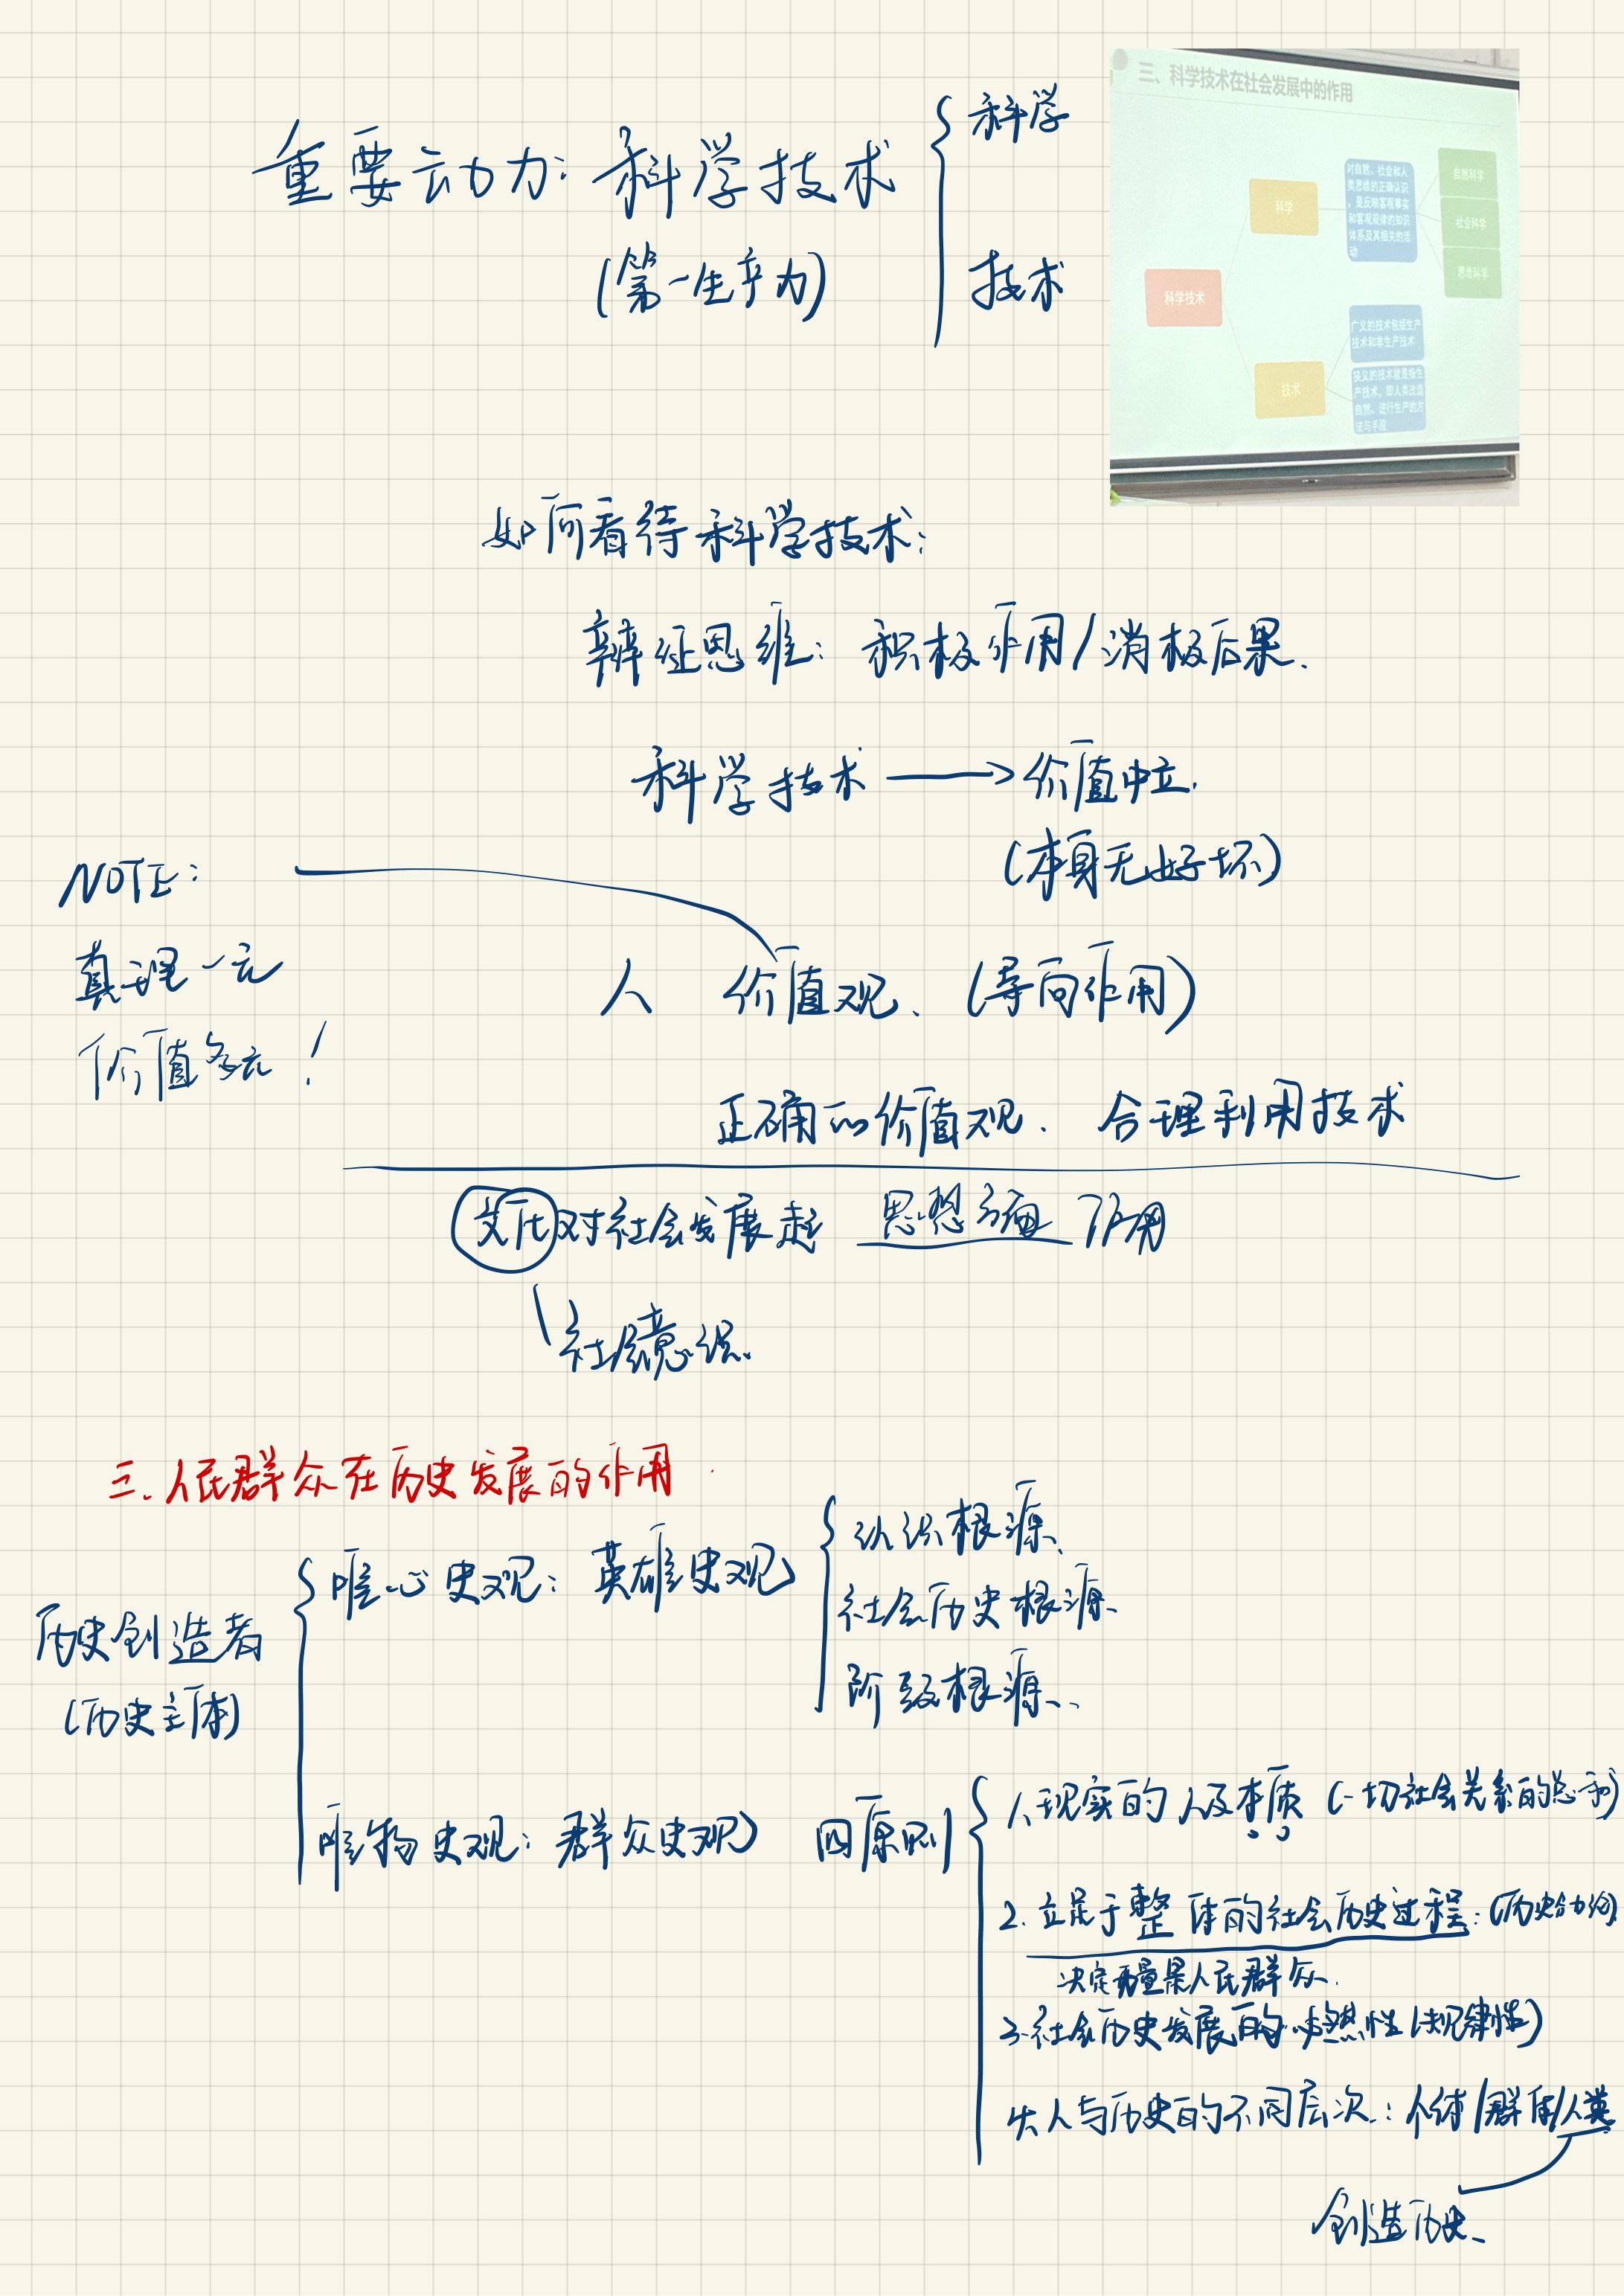 重要动力：科学技术
（第一生产力）
科学
技术
三、科学技术在社会发展中的作用
科学技术
科学
对自然、社会和人
类思维的正确认识
，是反映客观事实
和客观规律的知识
体系及其相关的活
动
自然科学
社会科学
思维科学
技术
广义的技术包括生产
技术和非生产技术
狭义的技术就是指生
产技术，即人类改造
自然、进行生产的方
法与手段
如何看待科学技术：
辩证思维：积极作用/消极后果.
科学技术 → 价值中立.
（本身无好坏）
NOTE：
真理一元
价值多元！
人 价值观、（导向作用）
正确的价值观. 合理利用技术
文化对社会发展起 思想方面 作用
社会意识、
三.人民群众在历史发展的作用
历史创造者
（历史主体）
唯心史观：英雄史观
认识根源、
社会历史根源、
阶级根源、
唯物史观：群众史观 四原则
1、现实的人及本质（一切社会关系的总和）
2. 立足于整体的社会历史过程：（历史合力论）
决定力量是人民群众.
3.社会历史发展的必然性（规律性）
4.人与历史的不同层次：个体/群体/人类
创造历史、